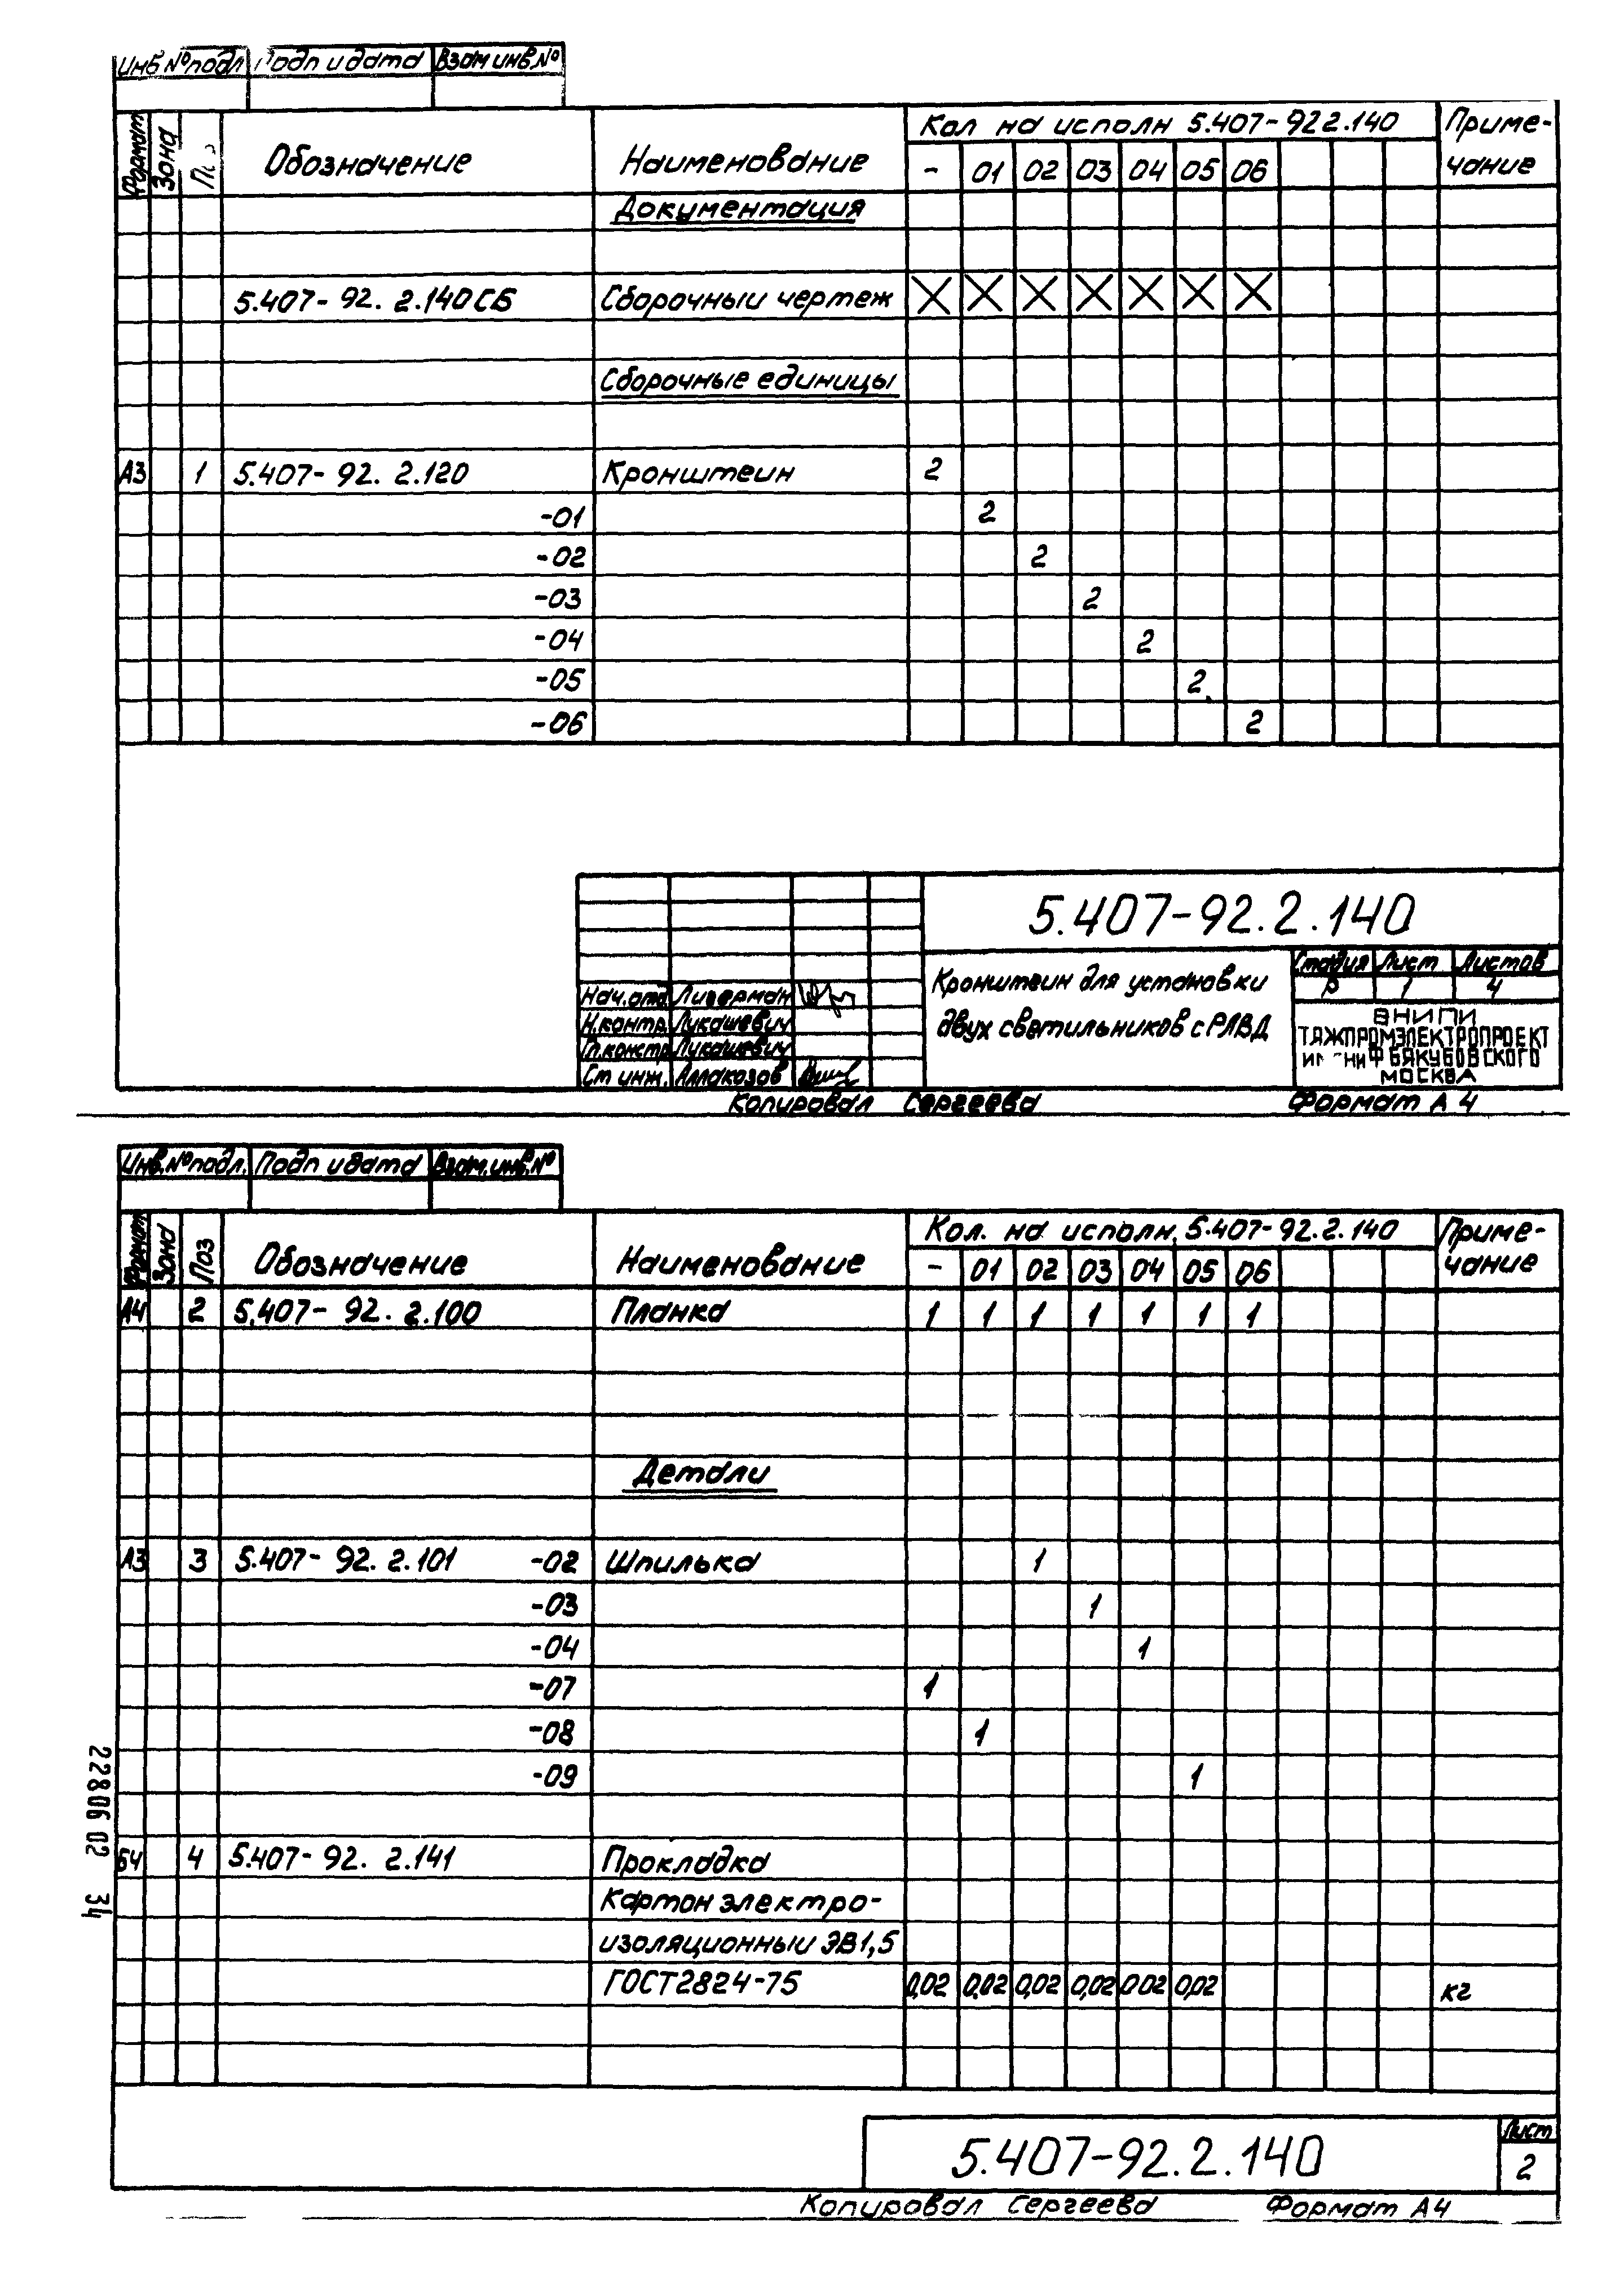 Инв №подл Подп и дата Взам инв.№
Формат Зона Обозначение Наименование Кол на исполн 5.407-922.140 Приме-
- 01 02 03 04 05 06 чание
Документация
5.407-92. 2.140СБ Сборочный чертеж
Сборочные единицы
А3 1 5.407-92. 2.120 Кронштеин 2
-01 2
-02 2
-03 2
-04 2
-05 2
-06 2
5.407-92.2.140
Кронштеин для установки
двух светильников с РЛВД
Стадия Лист Листов
Р 1 4
Нач.отд. Лигерман
Н.контр. Лукашевич
Гл.констр Лукашевич
Ст инж. Аллакозов
ВНИПИ
ТЯЖПРОМЭЛЕКТРОПРОЕКТ
Ф БЯКУБОВСКОГО
МОСКВА
Копировал Сергеева Формат А4
Инв.№подл. Подп и дата Взам.инв.№
Формат Зона Поз Обозначение Наименование Кол. на исполн. 5.407-92.2.140 Приме-
- 01 02 03 04 05 06 чание
А4 2 5.407-92. 2.100 Планка 1 1 1 1 1 1 1
Детали
А3 3 5.407-92. 2.101 -02 Шпилька 1
-03 1
-04 1
-07 1
-08 1
-09 1
БЧ 4 5.407-92. 2.141 Прокладка
Картон электро-
изоляционный ЭВ1,5
ГОСТ2824-75 0,02 0,02 0,02 0,02 0,02 0,02 кг
22806 02 34
5.407-92.2.140
Лист
2
Копировал Сергеева Формат А4